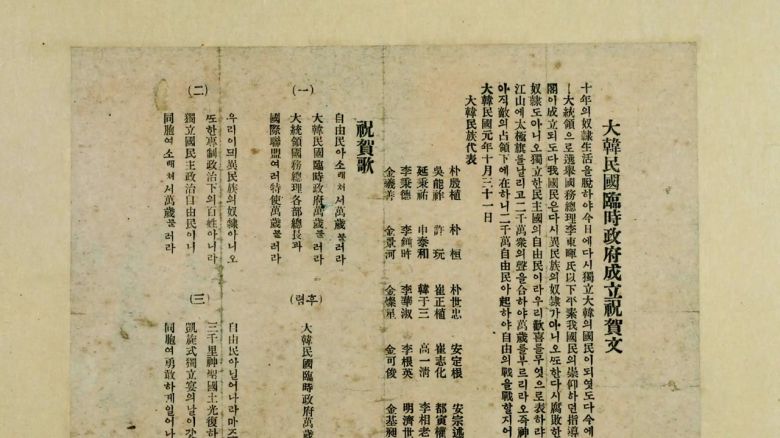 大韓民國臨時政府成立祝賀文
十年의奴隷生活을脫하야今日에다시獨立大韓의國民이되엿도다今에
大統領으로選擧國務總理李東暉氏以下平素我國民의崇仰하던指導
閣이成立되도다我國民은다시異民族의奴隷가아니오ᄯᅩ한다시腐敗한
奴隷도아니오獨立한民主國의自由民이라우리歡喜를무엇으로表하랴
江山에太極旗를날리고二千萬衆의聲을合하야萬歲를부르리라오즉神
아직敵의占領下에在하니二千萬自由民아起하야自由의戰을戰할지어
大韓民國元年十月三十一日
大韓民族代表
朴殷植 朴桓 朴世忠 安定根 安宗述
吳能祚 許玩 崔正植 崔志化 都寅權
延秉祐 申泰和 韓于三 高一淸 李相老
李秉德 李鍾旿 李華淑 李根英 明濟世
金羲善 金景河 金燦星 金可俊 金基昶
祝賀歌
(一)
自由民아소래처서萬歲불러라
大韓民國臨時政府萬歲불러라
大統領國務總理各部總長과
國際聯盟여러特使萬歲불러라
(후렴)
大韓民國臨時政府萬
(二)
우리이믜異民族의奴隷아니오
ᄯᅩ한專制政治下의百姓아니라
獨立國民主政治自由民이니
同胞여소래처서萬歲불러라
(三)
自由民아닐어나라마즈
三千里神聖國土光復하
凱旋式獨立宴의날이갓
同胞여勇敢하게일어나